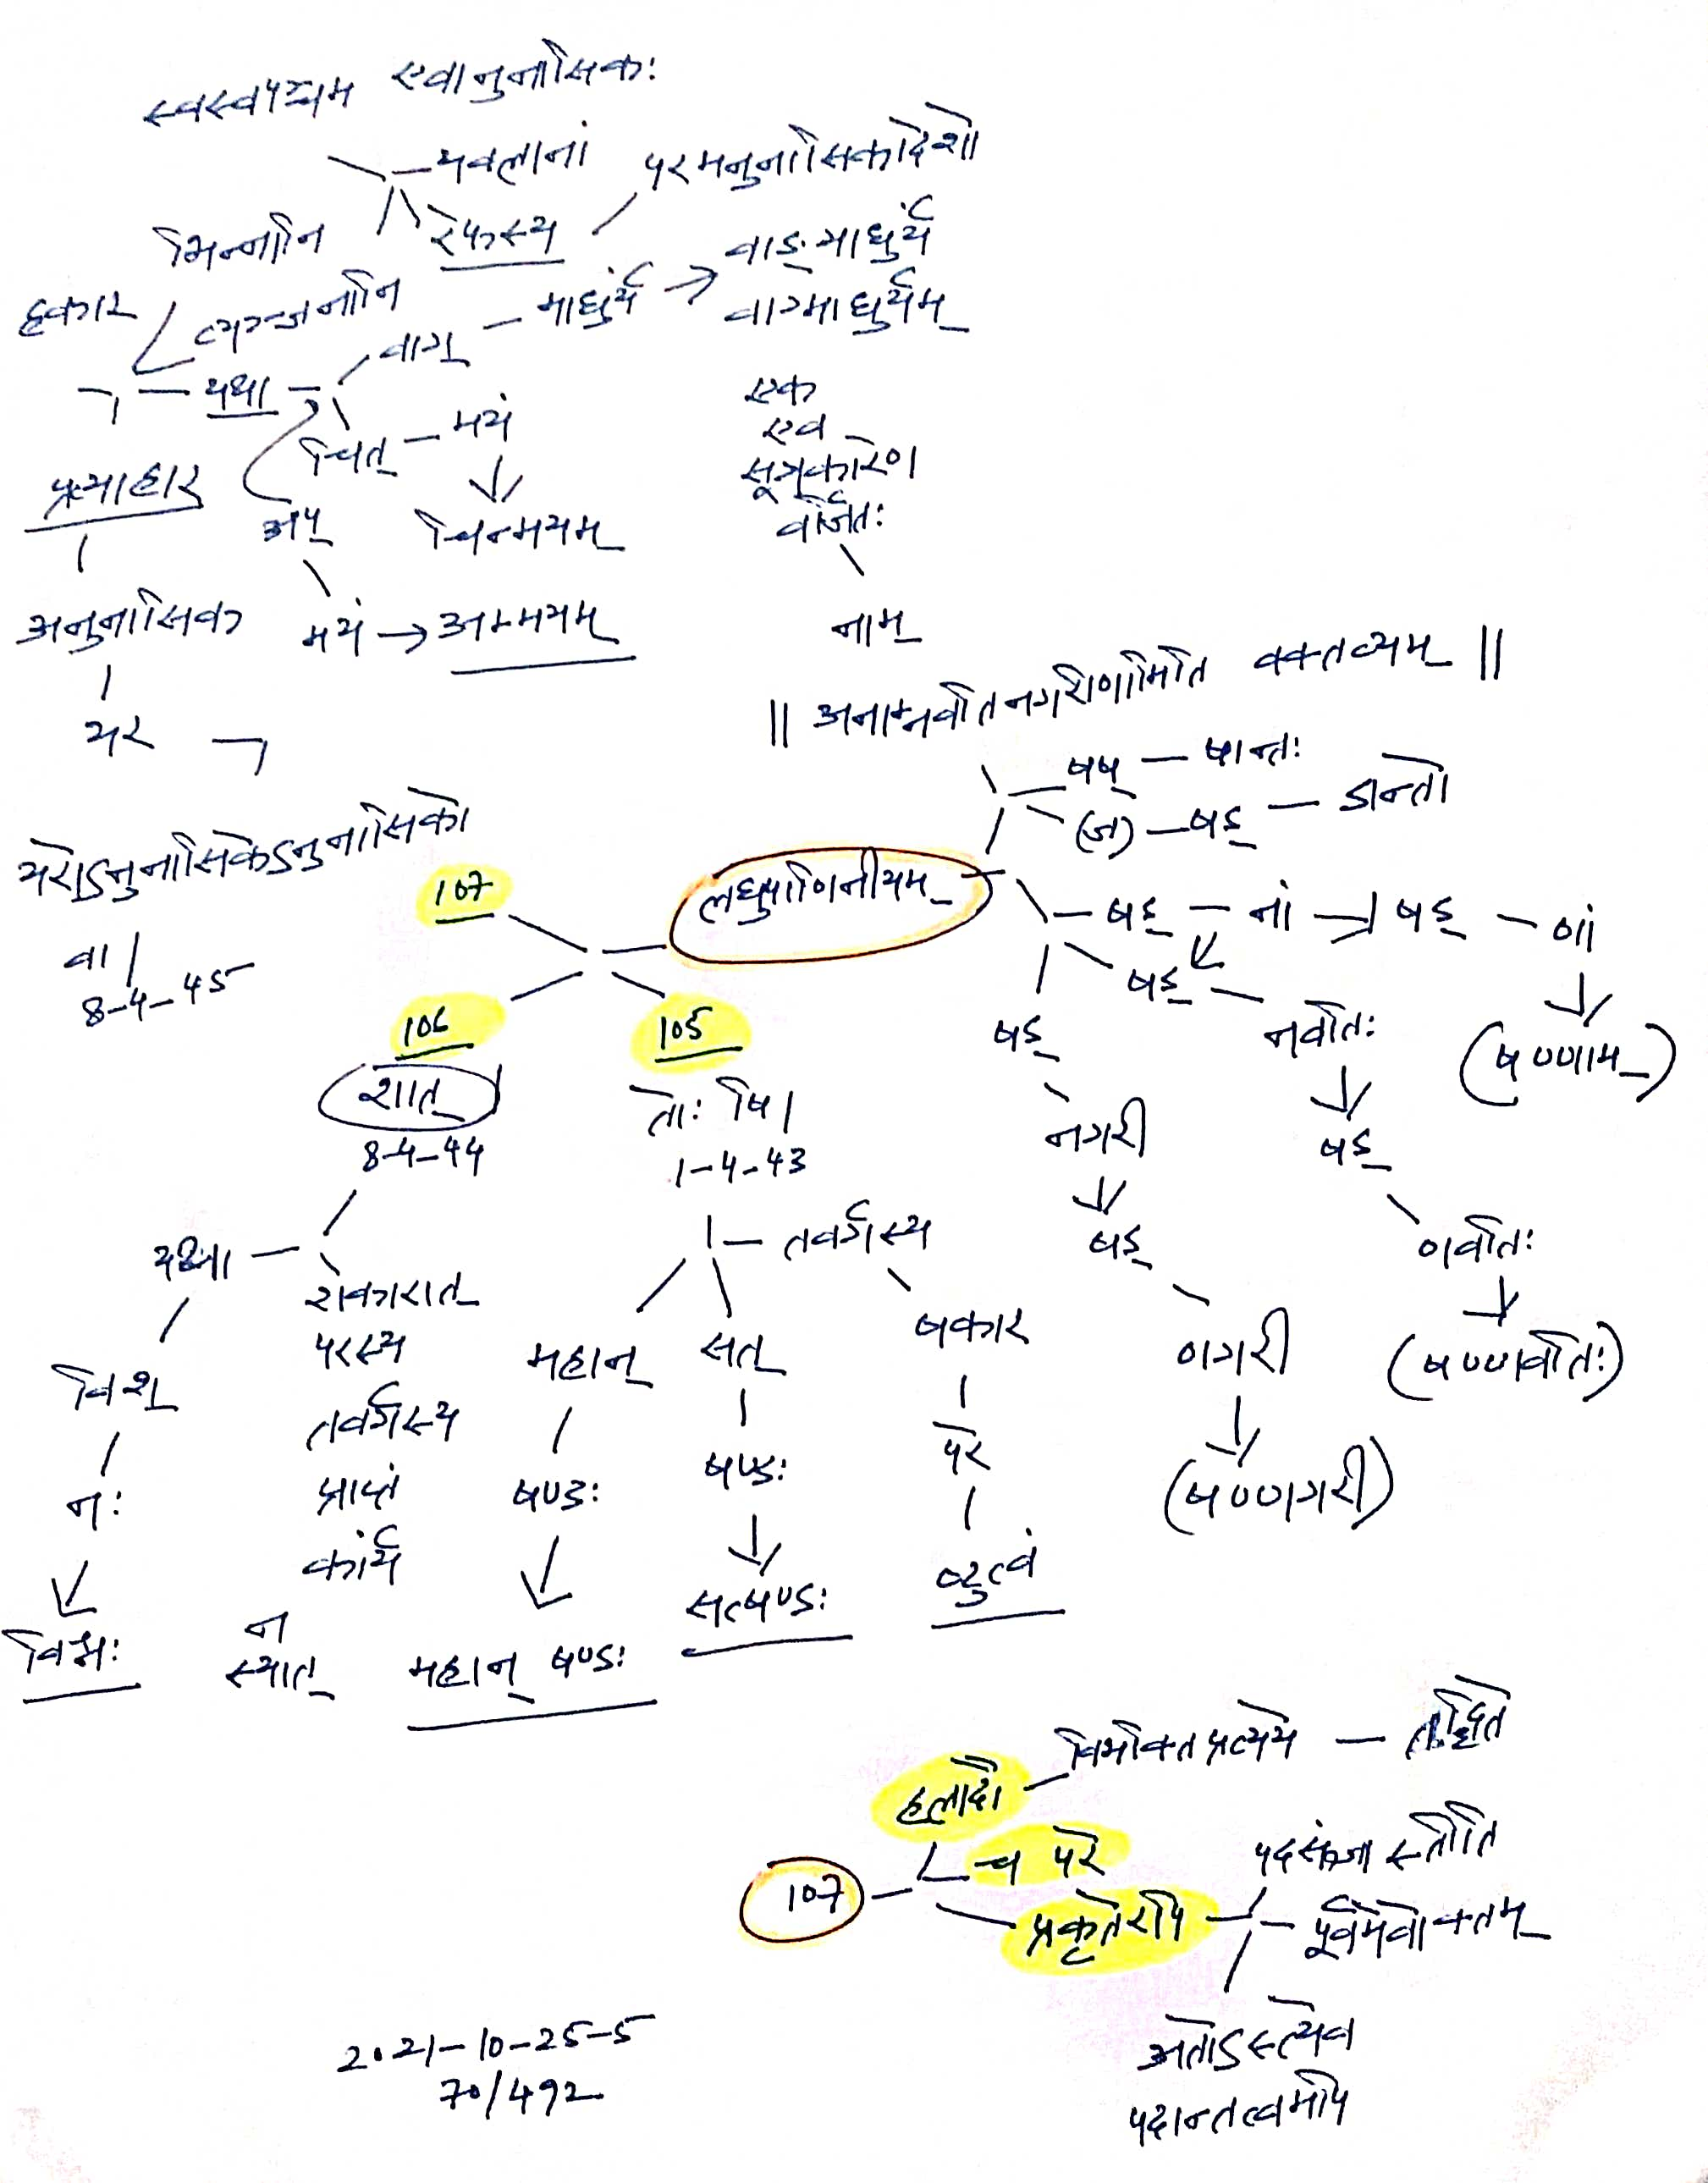 स्वस्वपञ्चम एवानुनासिकः
यवलानां
परमनुनासिकादेशो
भिन्नानि
रेफस्य
वाङ्माधुर्यं
हकार
व्यञ्जनानि
माधुर्यं
वाग्माधुर्यम्
वाग्
यथा
चित् — मयं
प्रत्याहार
अप्
चिन्मयम्
एक
एव
सूत्रकारेण
वर्जितः
अनुनासिक
मयं → अम्मयम्
नाम्
यर
|| अनाम्नवतिनगरीणामिति वक्तव्यम् ||
षष् — षान्तः
(ज) — षड् — डान्तो
यरोऽनुनासिकेऽनुनासिको
वा |
8-4-45
107
लघुपाणिनीयम्
षड् — नां → षड् — णां
षड् — नवतिः
(षण्णाम्)
षड्
106
105
शात्
8-4-44
तोः षि |
1-4-43
नगरी
षड्
षड्
णवतिः
(षण्णवतिः)
णगरी
(षण्णगरी)
यथा
शकारात्
परस्य
तवर्गस्य
प्राप्तं
कार्यं
न
स्यात्
विश्
नः
विश्नः
तवर्गस्य
महान्
सत्
षकार
षण्डः
षण्डः
परे
ष्टुत्वं
महान् षण्डः
सत्षण्डः
विभक्तिप्रत्यये — तद्धिते
हलादौ
च परे
107
प्रकृतेरपि
पदसंज्ञास्तीति
पूर्वमेवोक्तम्
अतोऽस्त्येव
पदान्तत्वमपि
2021-10-25-5
70/492